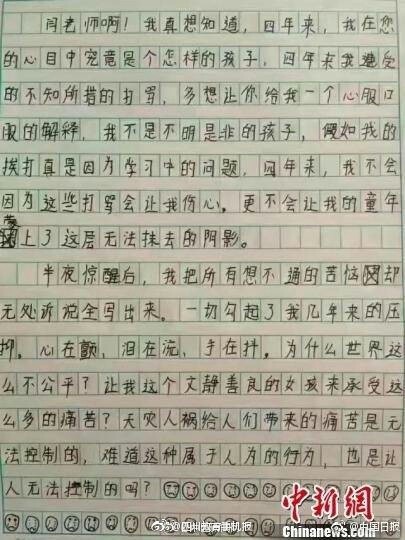 闫老师啊！我真想知道，四年来，我在您
的心目中究竟是个怎样的孩子，四年来我遭受
的不知所措的打骂，多想让你给我一个心服口
服的解释，我不是不明是非的孩子，假如我的
挨打真是因为学习中的问题，四年来，我不会
因为这些打骂会让我伤心。更不会让我的童年
蒙上了这层无法抹去的阴影。
半夜惊醒后，我把所有想不通的苦恼却
无处诉说全写出来。一切勾起了我几年来的压
抑。心在颤，泪在流，手在抖。为什么世界这
么不公平？让我这个文静善良的女孩来承受这
么多的痛苦？天灾人祸给人们带来的痛苦是无
法控制的，难道这种属于人为的行为，也是让
人无法控制的吗？
中新网
Chinanews.com
@中国日报